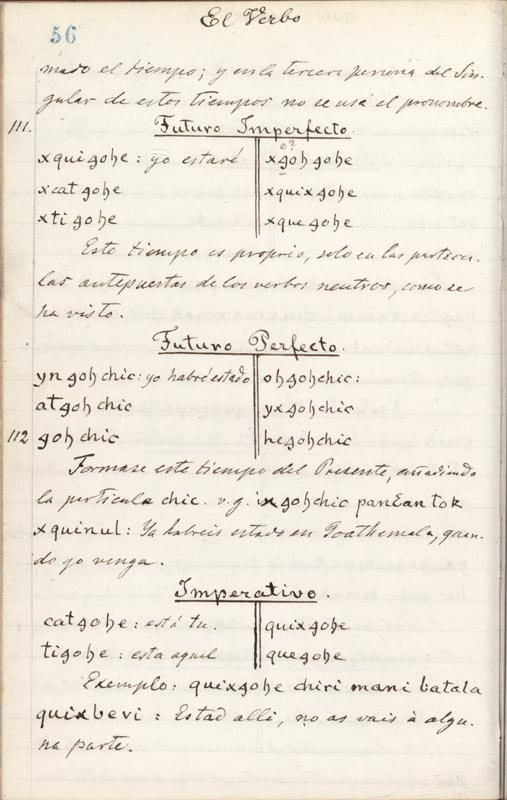 El Verbo
56
mado el tiempo; y en la tercera persona del Sin-
gular de estos tiempos no se usa el pronombre.
111. Futuro Imperfecto.
o?
xquigohe: yo estaré xgohgohe
xcatgohe xquixgohe
xtigohe xquegohe
Este tiempo es proprio, solo en las particu-
las antepuestas de los verbos neutros, como se
ha visto.
Futuro Perfecto.
yn goh chic: yo habré estado ohgohchic:
at goh chic yxgohchic
112 goh chic hegohchic
Formase este tiempo del Presente, añadiendo
la particula chic. v.g. ix gohchic panɛan tok
xquinul: Ya habreis estado en Goathemala, quan-
do yo venga.
Imperativo.
catgohe: está tu. quixgohe
tigohe: esta aquel quegohe
Exemplo: quixgohe chiri mani batala
quixbevi: Estad alli, no os vais à algu-
na parte.